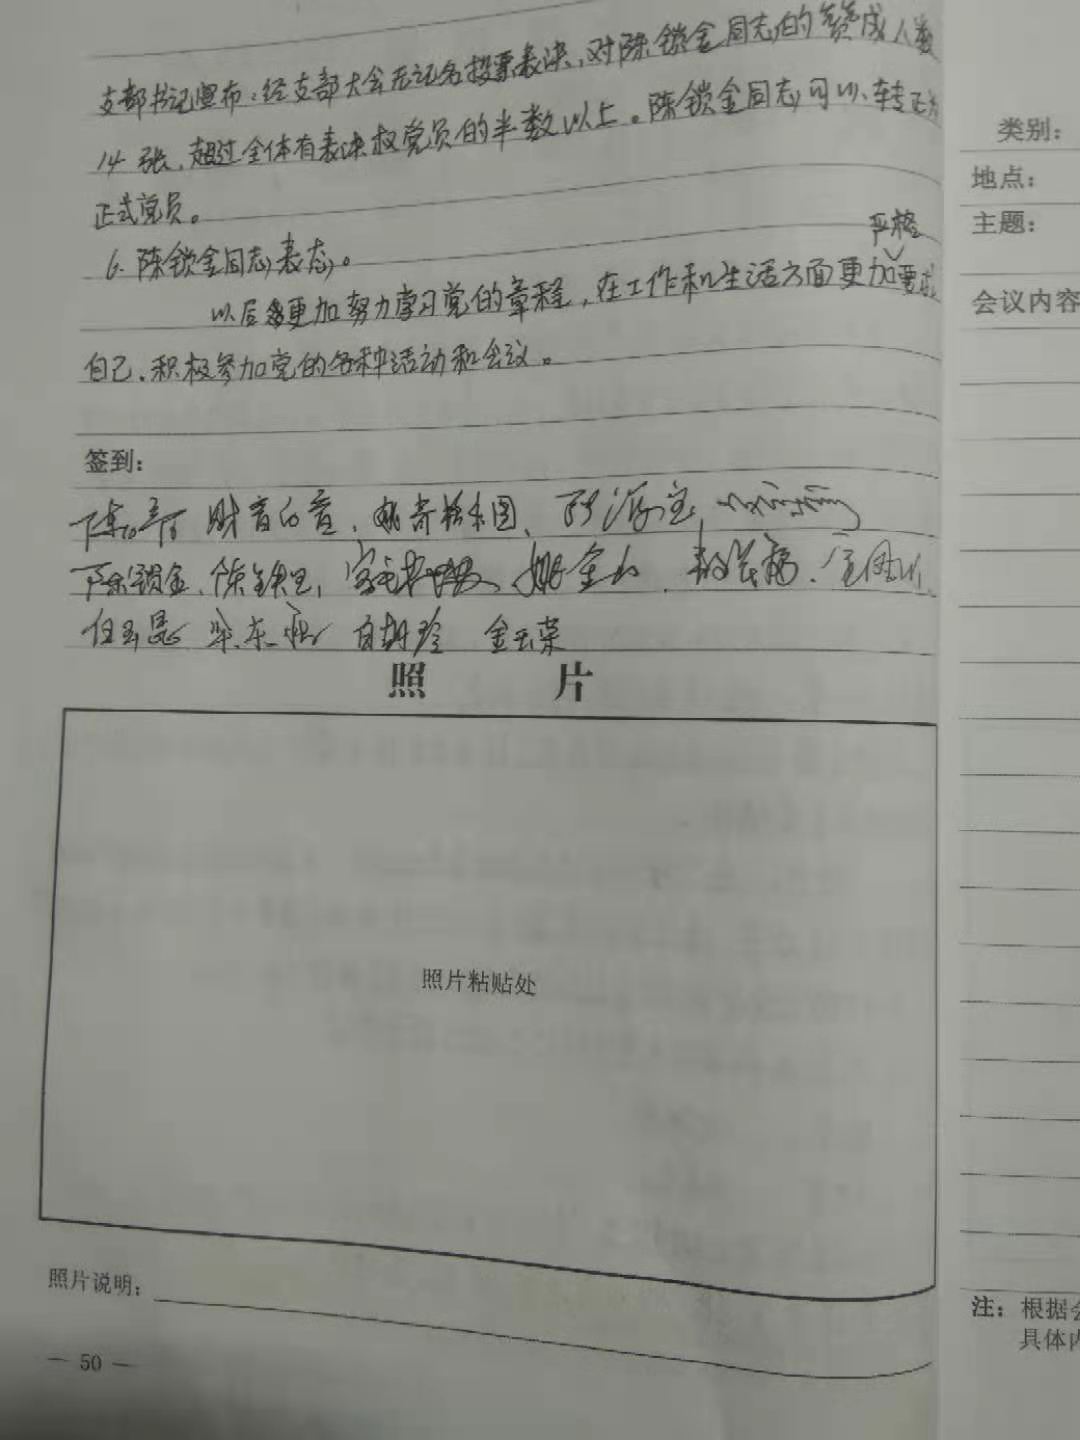 支部书记宣布：经支部大会无记名投票表决，对陈锁金同志的赞成人数
14张，超过全体有表决权党员的半数以上。陈锁金同志可以转正为
正式党员。
6. 陈锁金同志表态。
以后更加努力学习党的章程，在工作和生活方面更加严格要求
自己，积极参加党的各种活动和会议。
签到：
陈锁金、陈铁
姚金山
白胡玲 金玉荣
照 片
照片粘贴处
照片说明：
— 50 —
类别：
地点：
主题：
会议内容
注：根据会
具体内